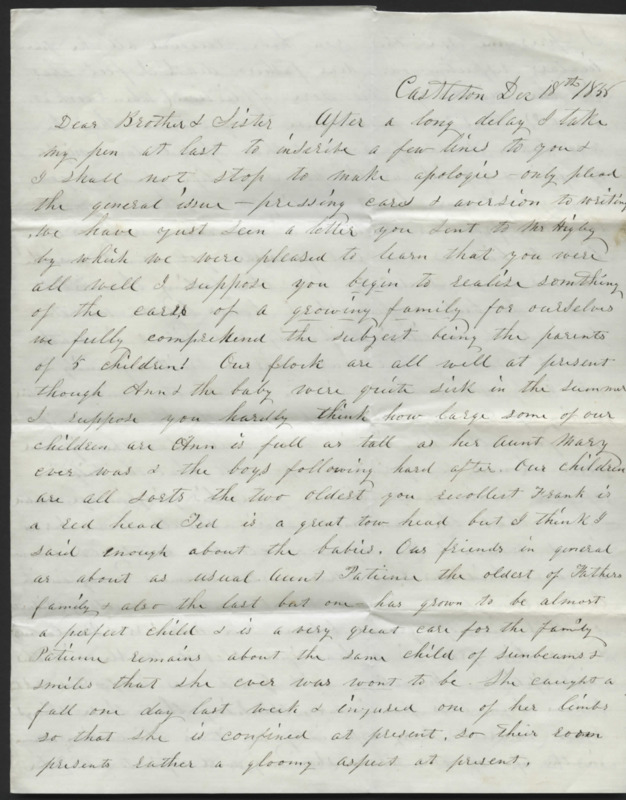 Castleton Dec 18th 18
Dear Brother & Sister After a long delay I take
my pen at last to inscribe a few lines to you &
I shall not stop to make apologies - only plead
the general issue - pressing cares & aversion to writing
We have just seen a letter you sent to Mr Higley
by which we were pleased to learn that you were
all well I suppose you begin to realise something
of the cares of a growing family for ourselves
we fully comprehend the subject being the parents
of 5 children! Our flock are all well at present
though Ann & the baby were quite sick in the summer
I suppose you hardly think how large some of our
children are Ann is full as tall as her Aunt Mary
ever was & the boys following hard after. Our children
are all sorts the two oldest you recollect Frank is
a red head Ted is a great tow head but I think I
said enough about the babies. Our friends in general
are about as usual Aunt Patience the oldest of Fathers
family & also the last but one has grown to be almost
a perfect child & is a very great care for the family
Patience remains about the same child of sunbeams &
smiles that she ever was wont to be. She caught a
fall one day last week & injured one of her limbs
so that she is confined at present. so their room
presents rather a gloomy aspect at present.